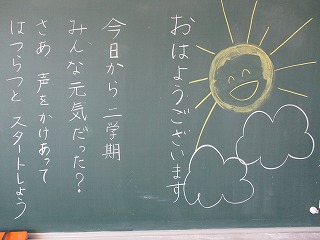 おはようございます
今日から 二学期
みんな元気だった?
さあ 声をかけあって
はつらつと スタートしよう